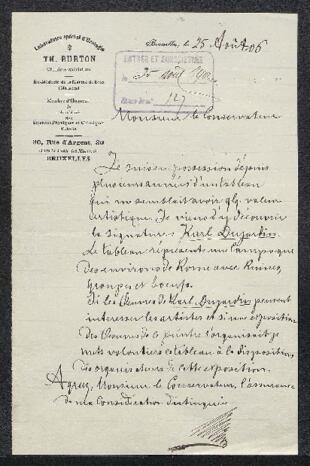 Laboratoire spécial d'Œnologie
TH. BURTON
Membre d'Honneur
30, Rue d'Argent, 30
BRUXELLES
Bruxelles, le 25 Août 06
127
Monsieur le Conservateur
Je suis en possession depuis
plusieurs années d'un tableau
qui me semblait avoir qlq. valeur
artistique. Je viens d'y découvrir
la signature : Karl Dujardin
Le tableau représente une Campagne
des environs de Rome avec Ruines,
groupes et boeufs.
Si les Œuvres de Karl Dujardin peuvent
intéresser les artistes et si une exposition
des Œuvres de peintre s'organisait je
mets volontiers le tableau à la disposition
des organisateurs de cette exposition.
Agréez, Monsieur le Conservateur, l'assurance
de ma Considération distinguée